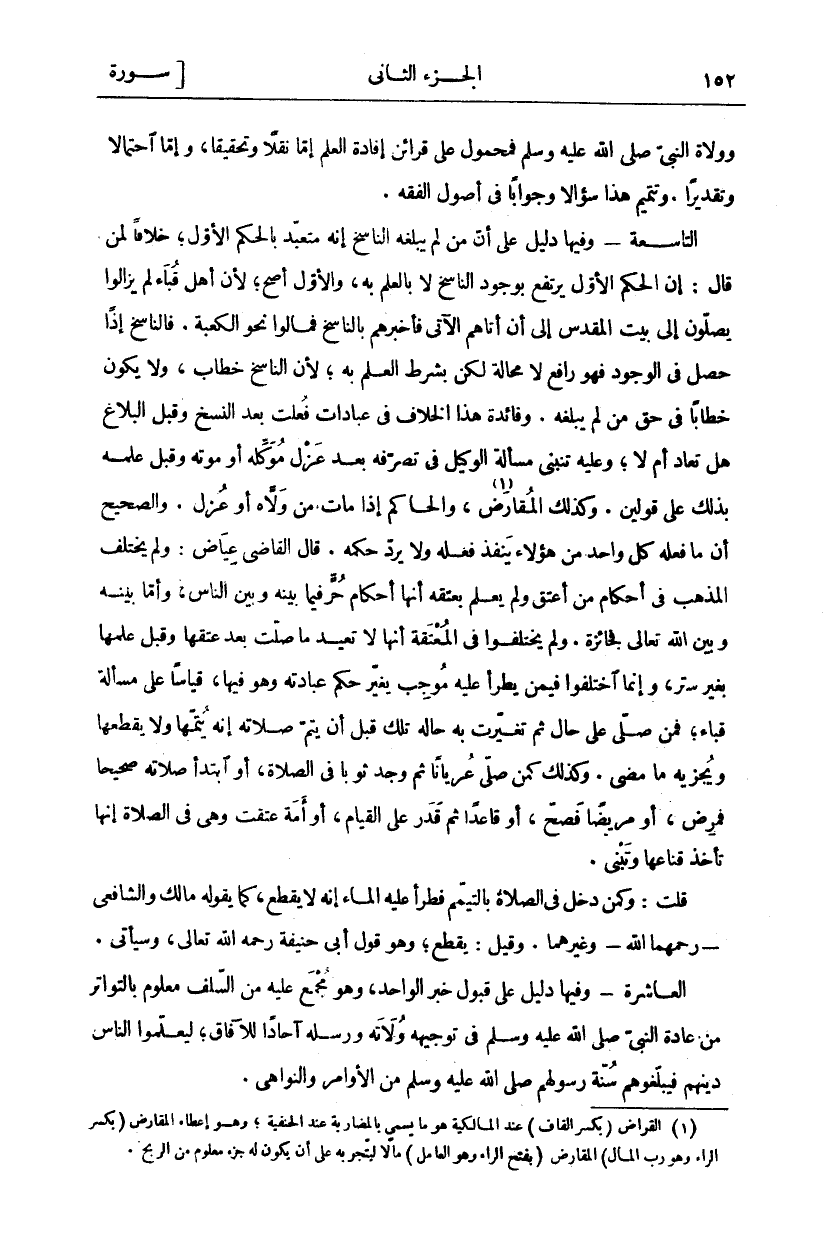 ١٥٢ الجـزء الثـانى [ ســورة
وولاة النبىّ صلى الله عليه وسلم فمحمول على قرائن إفادة العلم إمّا نقلًا وتحقيقا، وإمّا ٱحتمالا
وتقديرًا . وتتميم هذا سؤالا وجوابًا فى أصول الفقه .
التاسـعة – وفيها دليل على أنّ من لم يبلغه الناسخ إنه متعبّد بالحكم الأوّل؛ خلافًا لمن
قال : إن الحكم الأوّل يرتفع بوجود الناسخ لا بالعلم به، والأوّل أصح؛ لأن أهل قُبَاء لم يزالوا
يصلّون إلى بيت المقدس إلى أن أتاهم الآتى فأخبرهم بالناسخ فمـالوا نحو الكعبة . فالناسخ إذًا
حصل فى الوجود فهو رافع لا محالة لكن بشرط العـلم به ؛ لأن الناسخ خطاب ، ولا يكون
خطابًا فى حق من لم يبلغه . وفائدة هذا الخلاف فى عبادات فُعلت بعد النسخ وقبل البلاغ
هل تعاد أم لا ؛ وعليه تنبنى مسألة الوكيل فى تصرّفه بعـد عَزْل مُوَكِّله أو موته وقبل علمـه
بذلك على قولين . وكذلك المُقارَض (١) ، والحـاكم إذا مات من وَلَّاه أو عُزل . والصحيح
أن ما فعله كل واحد من هؤلاء يَنفذ فعـله ولا يردّ حكمه . قال القاضى عِيَاض : ولم يختلف
المذهب فى أحكام من أعتق ولم يعـلم بعتقه أنها أحكام حُرٍّ فيما بينه وبين الناس؛ وأمّا بينـه
وبين الله تعالى فجائزة . ولم يختلفـوا فى المُعْتَقة أنها لا تعيـد ما صلّت بعد عتقها وقبل علمها
بغير ستر، وإنما ٱختلفوا فيمن يطرأ عليه مُوجِب يغيّر حكم عبادته وهو فيها، قياسًا على مسألة
قباء؛ فمن صلّى على حال ثم تغـيّرت به حاله تلك قبل أن يتمّ صـلاته إنه يُتمّها ولا يقطعها
ويُجزيه ما مضى . وكذلك كمن صلّى عُريانًا ثم وجد ثوبا فى الصلاة، أو ٱبتدأ صلاته صحيحا
فمرِض ، أو مريضًا فَصحّ ، أو قاعدًا ثم قَدَر على القيام ، أو أَمَة عتقت وهى فى الصلاة إنها
تأخذ قناعها وتَبْنِى .
قلت : وكمن دخل فى الصلاة بالتيمّم فطرأ عليه المـاء إنه لا يقطع، كما يقوله مالك والشافعى
– رحمهما الله – وغيرهما . وقيل : يقطع؛ وهو قول أبى حنيفة رحمه الله تعالى، وسيأتى .
العـاشرة – وفيها دليل على قبول خبر الواحد، وهو مُجْمَع عليه من السّلف معلوم بالتواتر
من عادة النبىّ صلى الله عليه وسـلم فى توجيهه وُلَاتَه ورسـله آحادًا للآفاق؛ ليعـلّموا الناس
دينهم فيبلّغوهم سُنّة رسولهم صلى الله عليه وسلم من الأوامر والنواهى .
(١) القراض (بكسر القاف) عند المـالكية هو ما يسمى بالمضاربة عند الحنفية ؛ وهـو إعطاء المقارض (بكسر
الراء وهو رب المـال) المقارض (بفتح الراء وهو العامل) مالًا ليتّجر به على أن يكون له جزء معلوم من الربح .